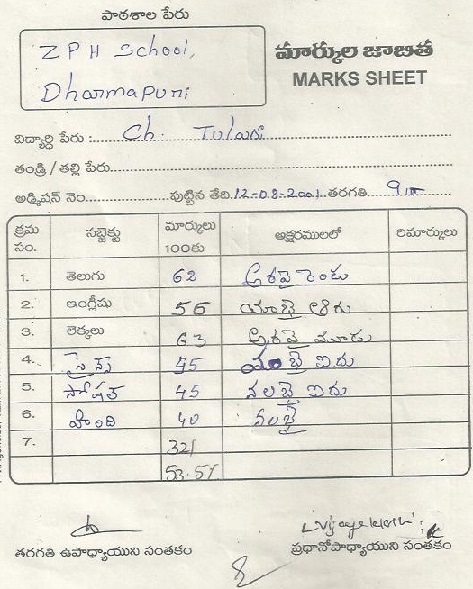 పాఠశాల పేరు
ZPH School,
Dharmapuri
మార్కుల జాబిత
MARKS SHEET
విద్యార్థి పేరు :........ Ch. Tulasi
తండ్రి / తల్లి పేరు........
అడ్మిషన్ నెం........ పుట్టిన తేది. 12-08-2001. తరగతి. 9
క్రమ సం. సబ్జెక్టు మార్కులు 100కు అక్షరములలో రిమార్కులు
1. తెలుగు 62 అరవై రెండు
2. ఇంగ్లీషు 56 యాభై ఆరు
3. లెక్కలు 63 అరవై మూడు
4. సైన్స్ 45 ఐదు
5. 45 నలబై ఐదు
6. హింది 40 నలబై
7. 321
53.5%
తరగతి ఉపాధ్యాయుని సంతకం
ప్రధానోపాధ్యాయుని సంతకం